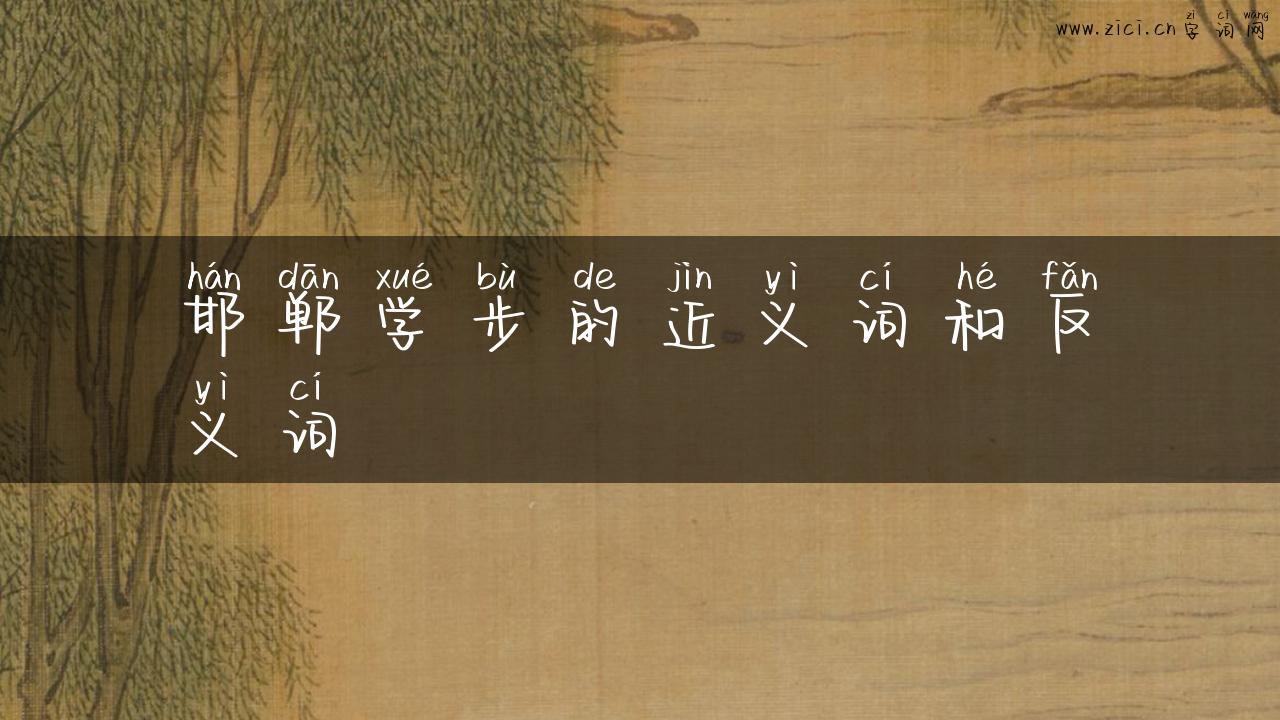 zì cí wǎng
www.zici.cn 字词网
hán dān xué bù de jìn yì cí hé fǎn
邯郸学步的近义词和反
yì cí
义词